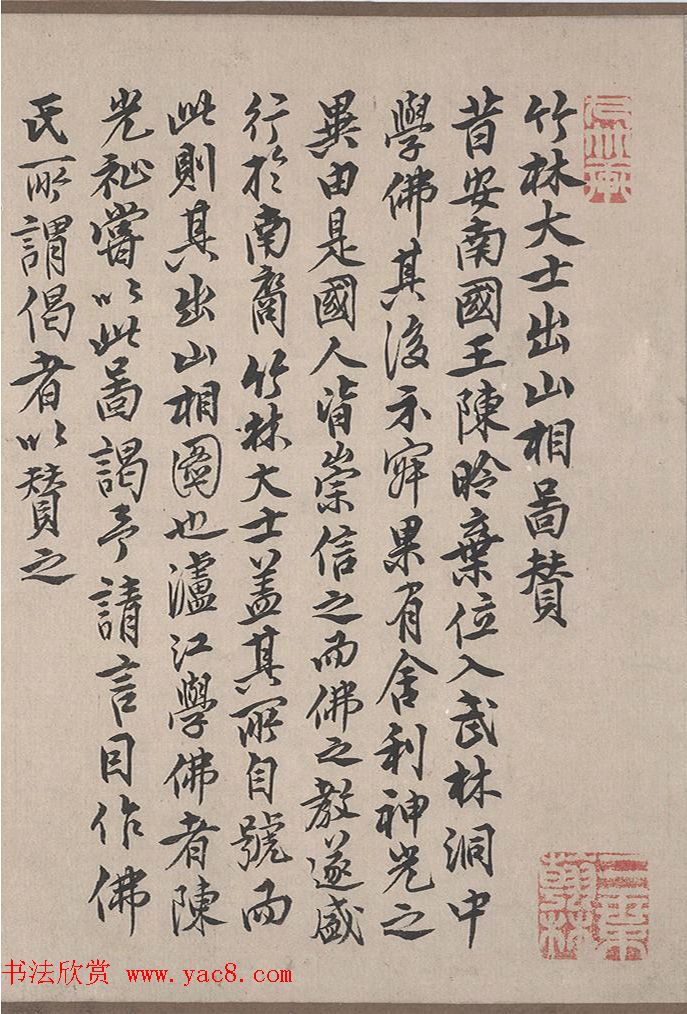 竹林大士出山相啚贊
昔安南國王陳昤棄位入武林洞中
學佛其後示寂果有舍利神光之
異由是國人皆崇信之而佛之教遂盛
行於南裔竹林大士盖其所自號而
此則其出山相圖也瀘江學佛者陳
光祉嘗以此啚謁予請言因作佛
氏所謂偈者以贊之
书法欣赏 www.yac8.com